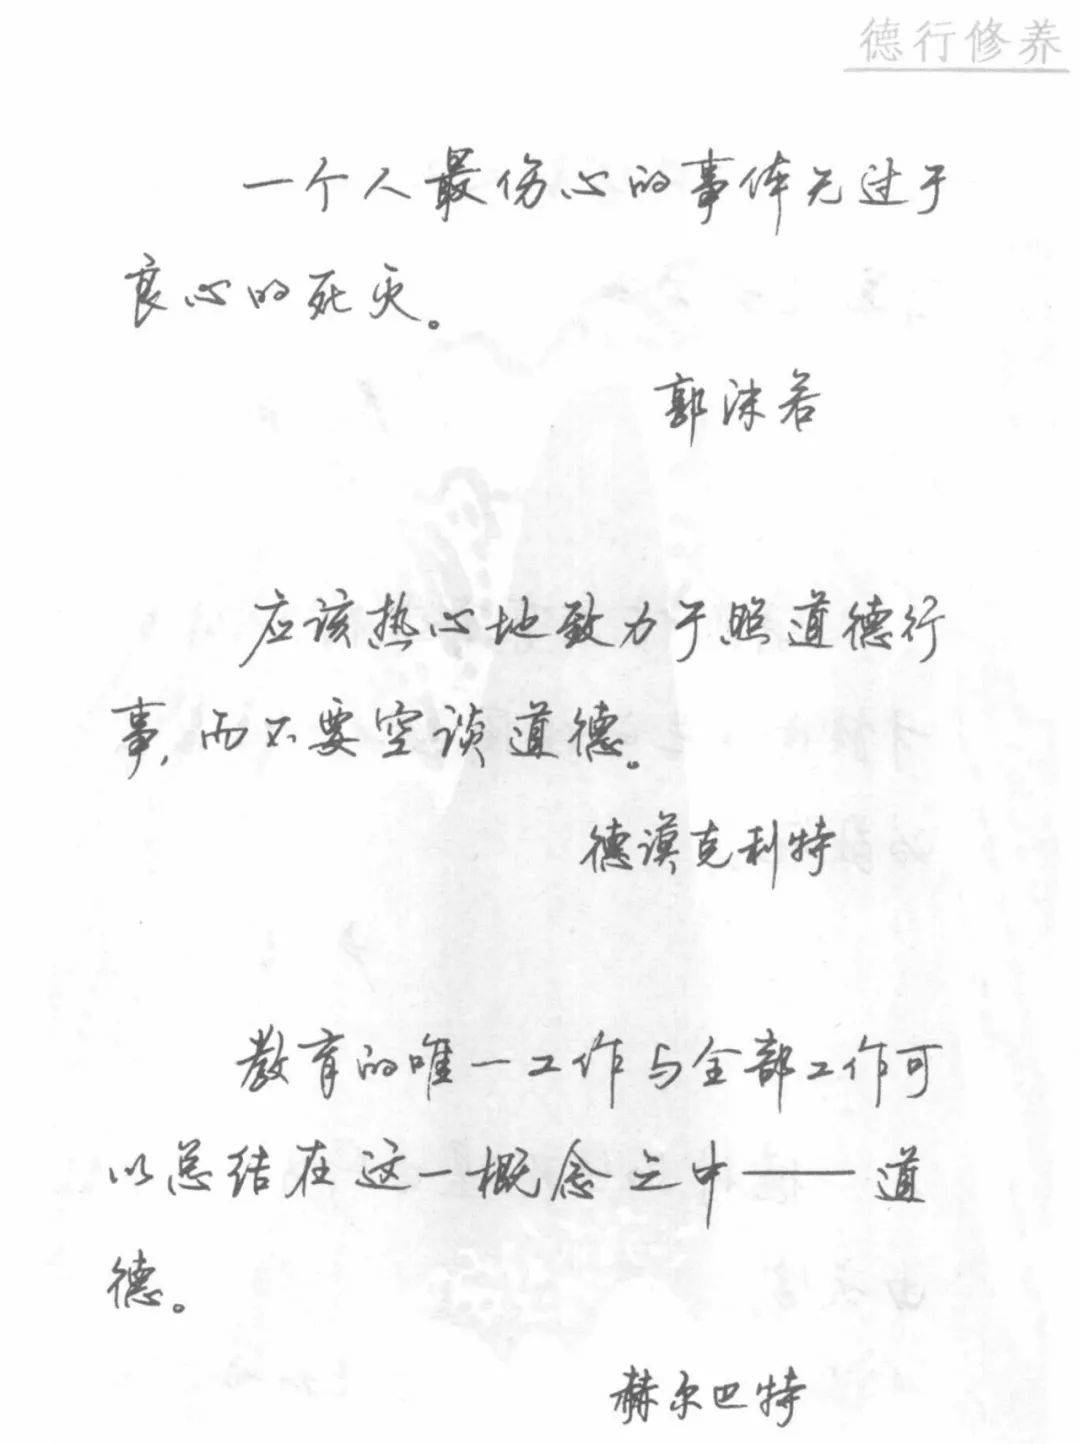 德行修养
一个人最伤心的事体无过于
良心的死灭。
郭沫若
应该热心地致力于照道德行
事，而不要空谈道德。
德谟克利特
教育的唯一工作与全部工作可
以总结在这一概念之中——道
德。
赫尔巴特